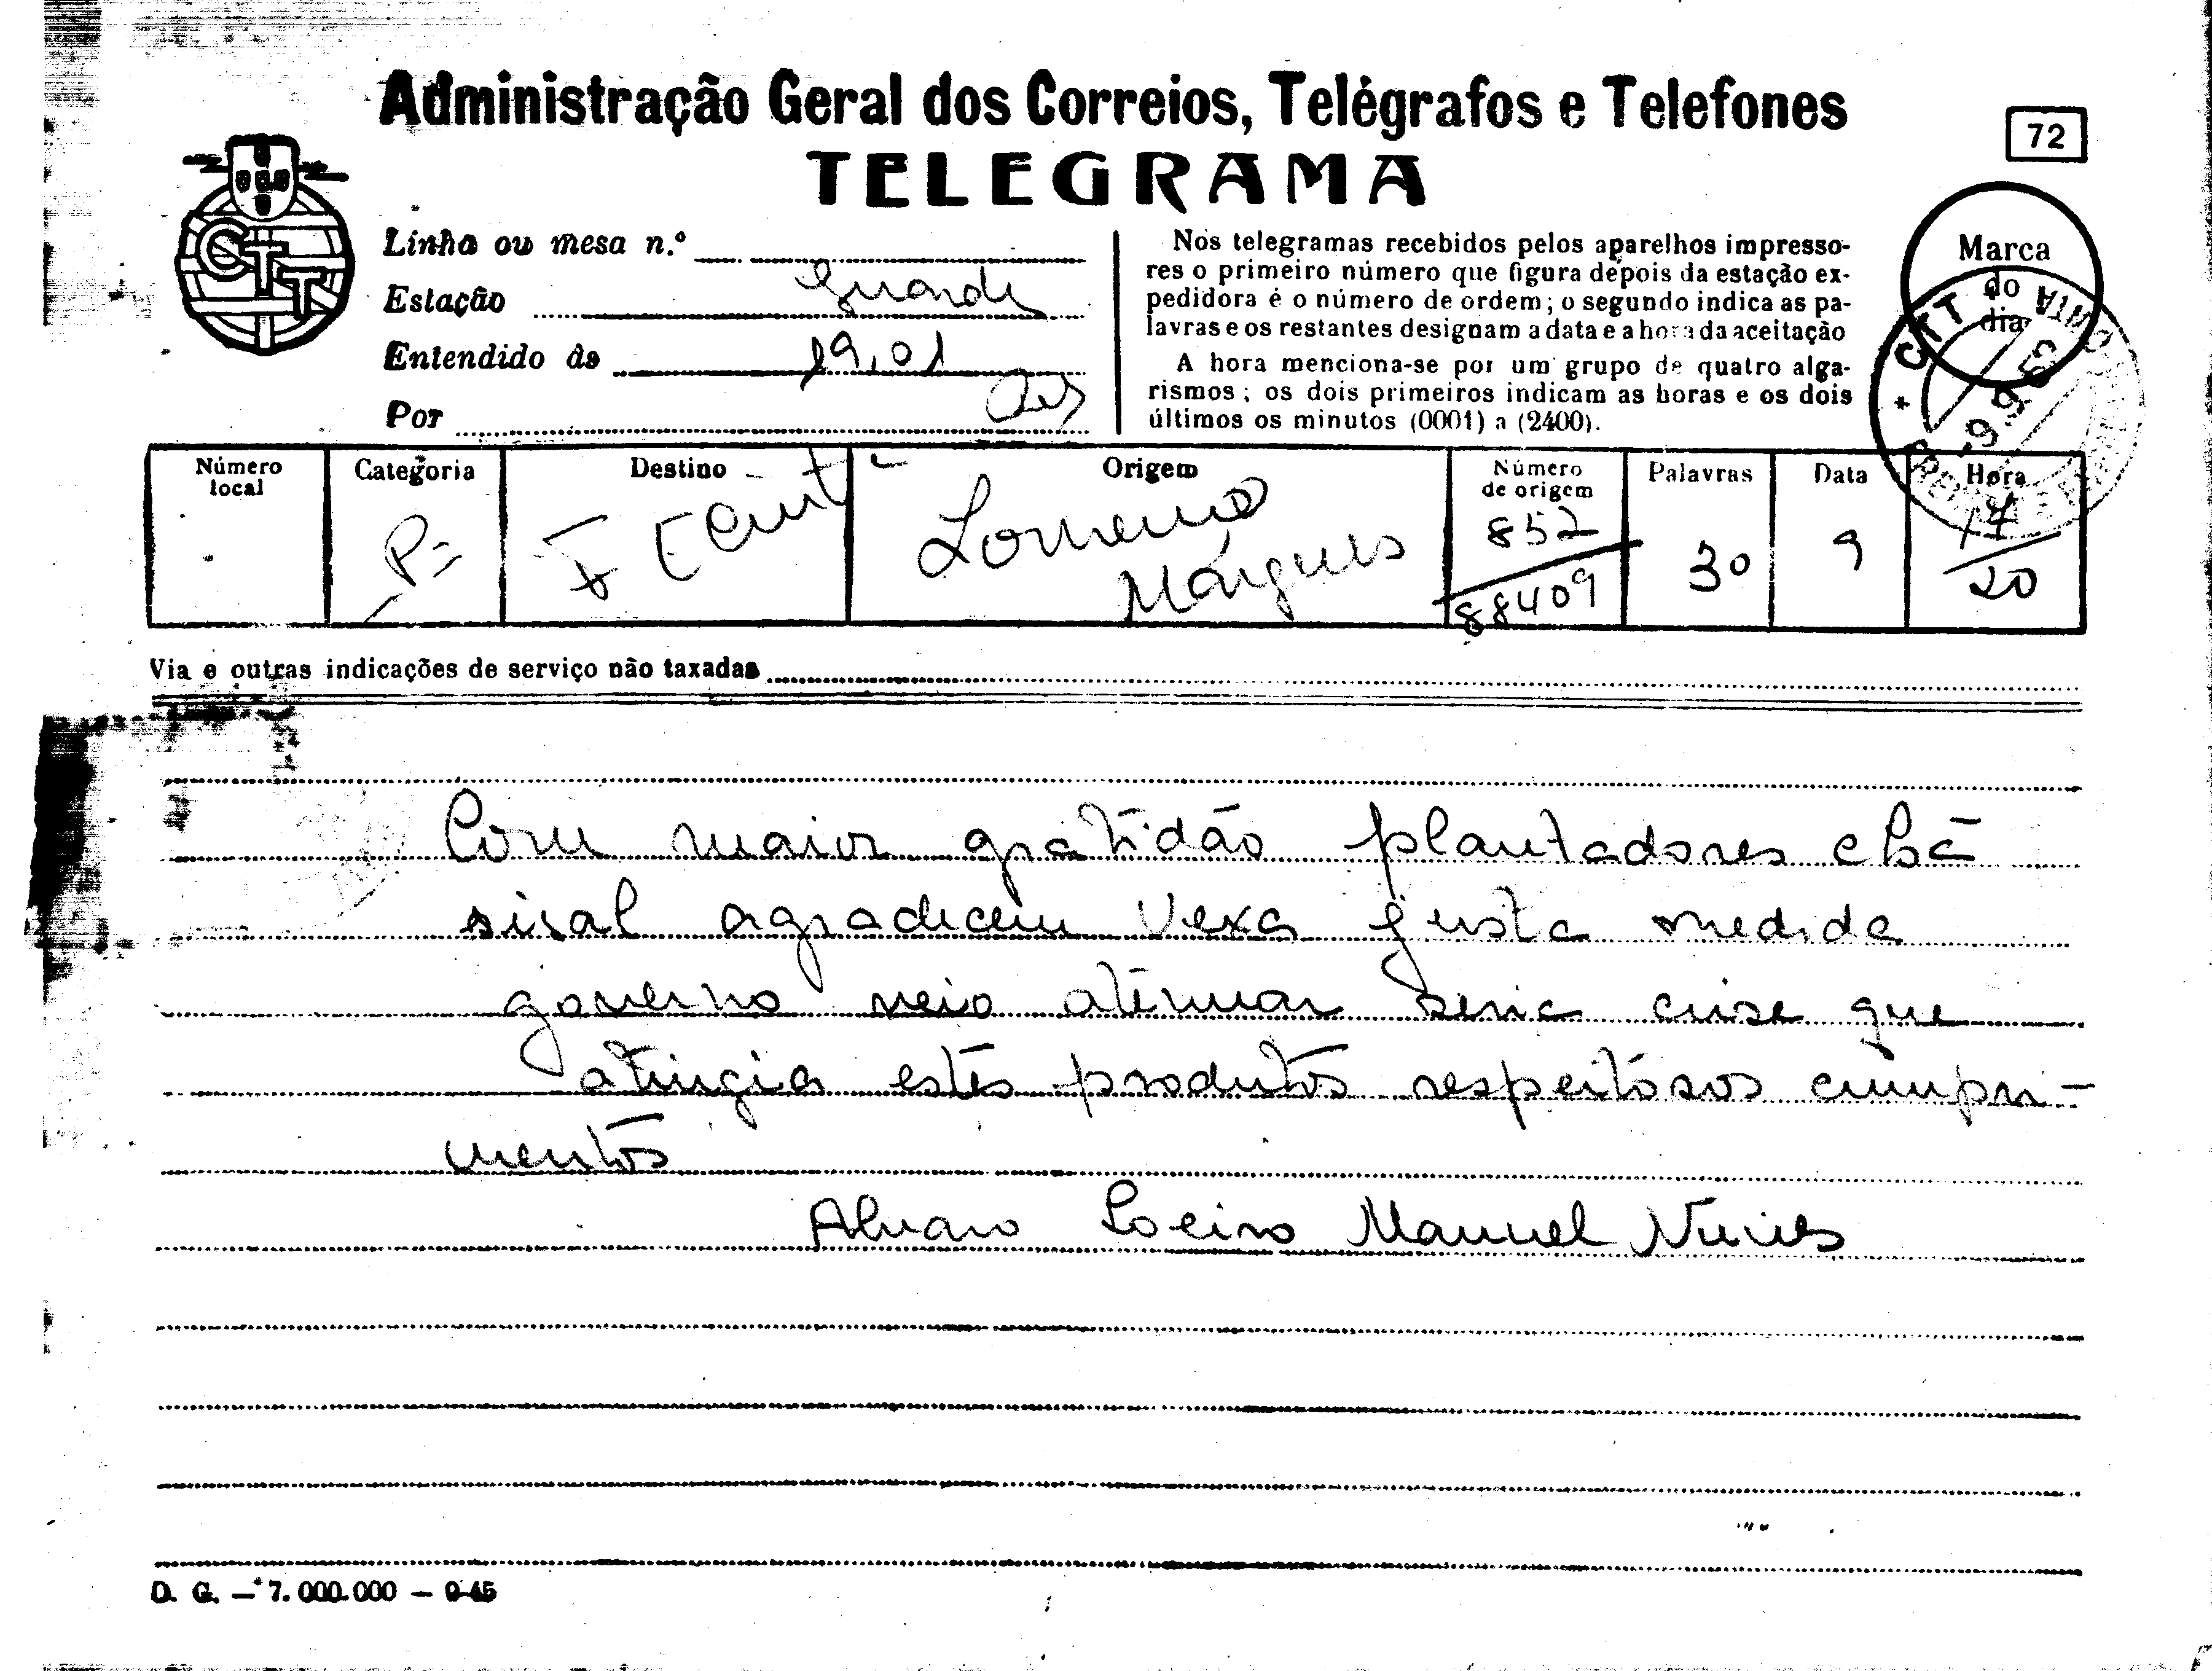 Administração Geral dos Correios, Telégrafos e Telefones
TELEGRAMA
72
CTT
Linha ou mesa n.º
Estação Guarda
Entendido às 19,01
Por
Nos telegramas recebidos pelos aparelhos impresso-
res o primeiro número que figura depois da estação ex-
pedidora é o número de ordem; o segundo indica as pa-
lavras e os restantes designam a data e a hora da aceitação
A hora menciona-se por um grupo de quatro alga-
rismos; os dois primeiros indicam as horas e os dois
últimos os minutos (0001) a (2400).
Marca
do
dia
CTT
Número
local
Categoria
Destino
Origem
Número
de origem
Palavras
Data
Hora
P=
Lourenço
Marques
852
88409
30
9
17
20
Via e outras indicações de serviço não taxadas
Com maior gratidão plantadores chá
sisal agradecem Vexa justa medida
governo veio atenuar seria crise que
atingia estes produtos respeitosos cumpri-
mentos
Alvaro Loeiro Manuel Nunes
D. G. — 7.000.000 — 9-45